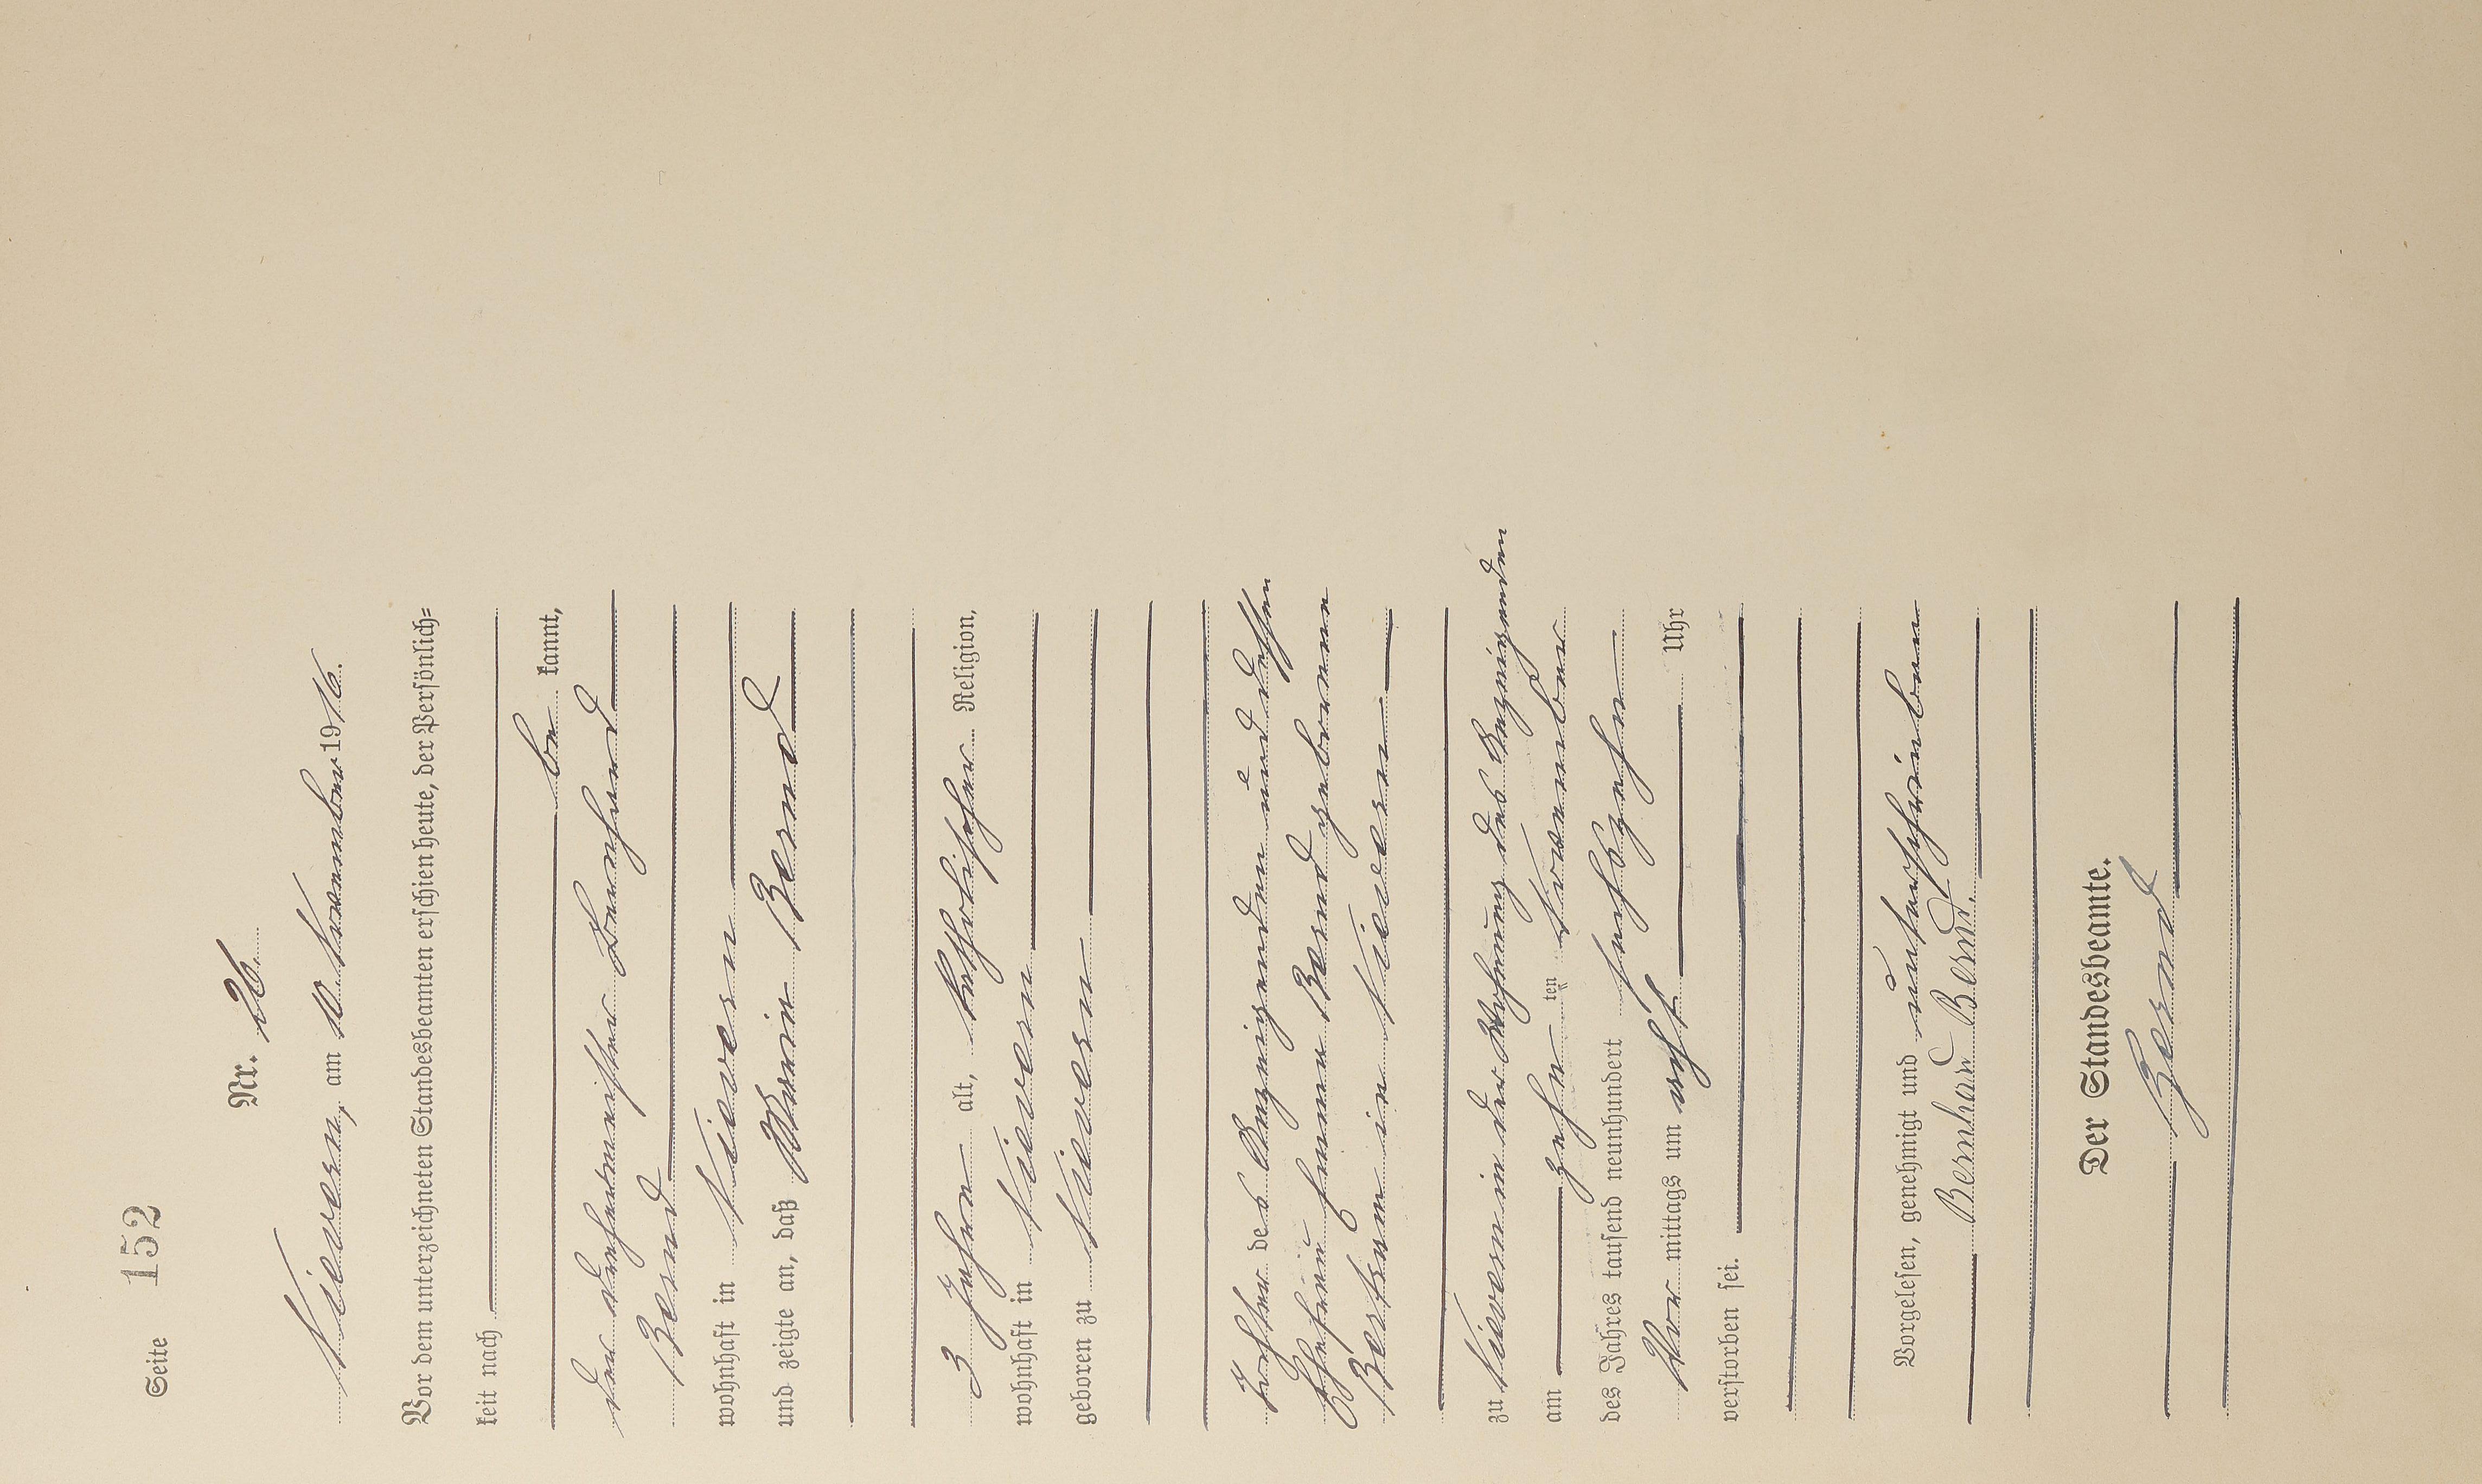 Seite 152
Nr. 26.
Nievern, am 10. November 1916.
Vor dem unterzeichneten Standesbeamten erschien heute, der Persönlich=
keit nach
be kannt,
der Drehermeister Bernhard
Bernd
wohnhaft in Nievern
und zeigte an, daß Maria Bernd
3 Jahre alt, katholischer Religion,
wohnhaft in Nievern
geboren zu Nievern
Tochter des Anzeigenden und dessen
Ehefrau Bernd geborenen
Bertram in Nievern
zu Nievern in der Wohnung des Anzeigenden
am zehn ten November
des Jahres tausend neunhundert sechszehn
Vor mittags um acht Uhr
verstorben sei.
Vorgelesen, genehmigt und unterschrieben
Bernhard Bernd.
Der Standesbeamte.
Bernd